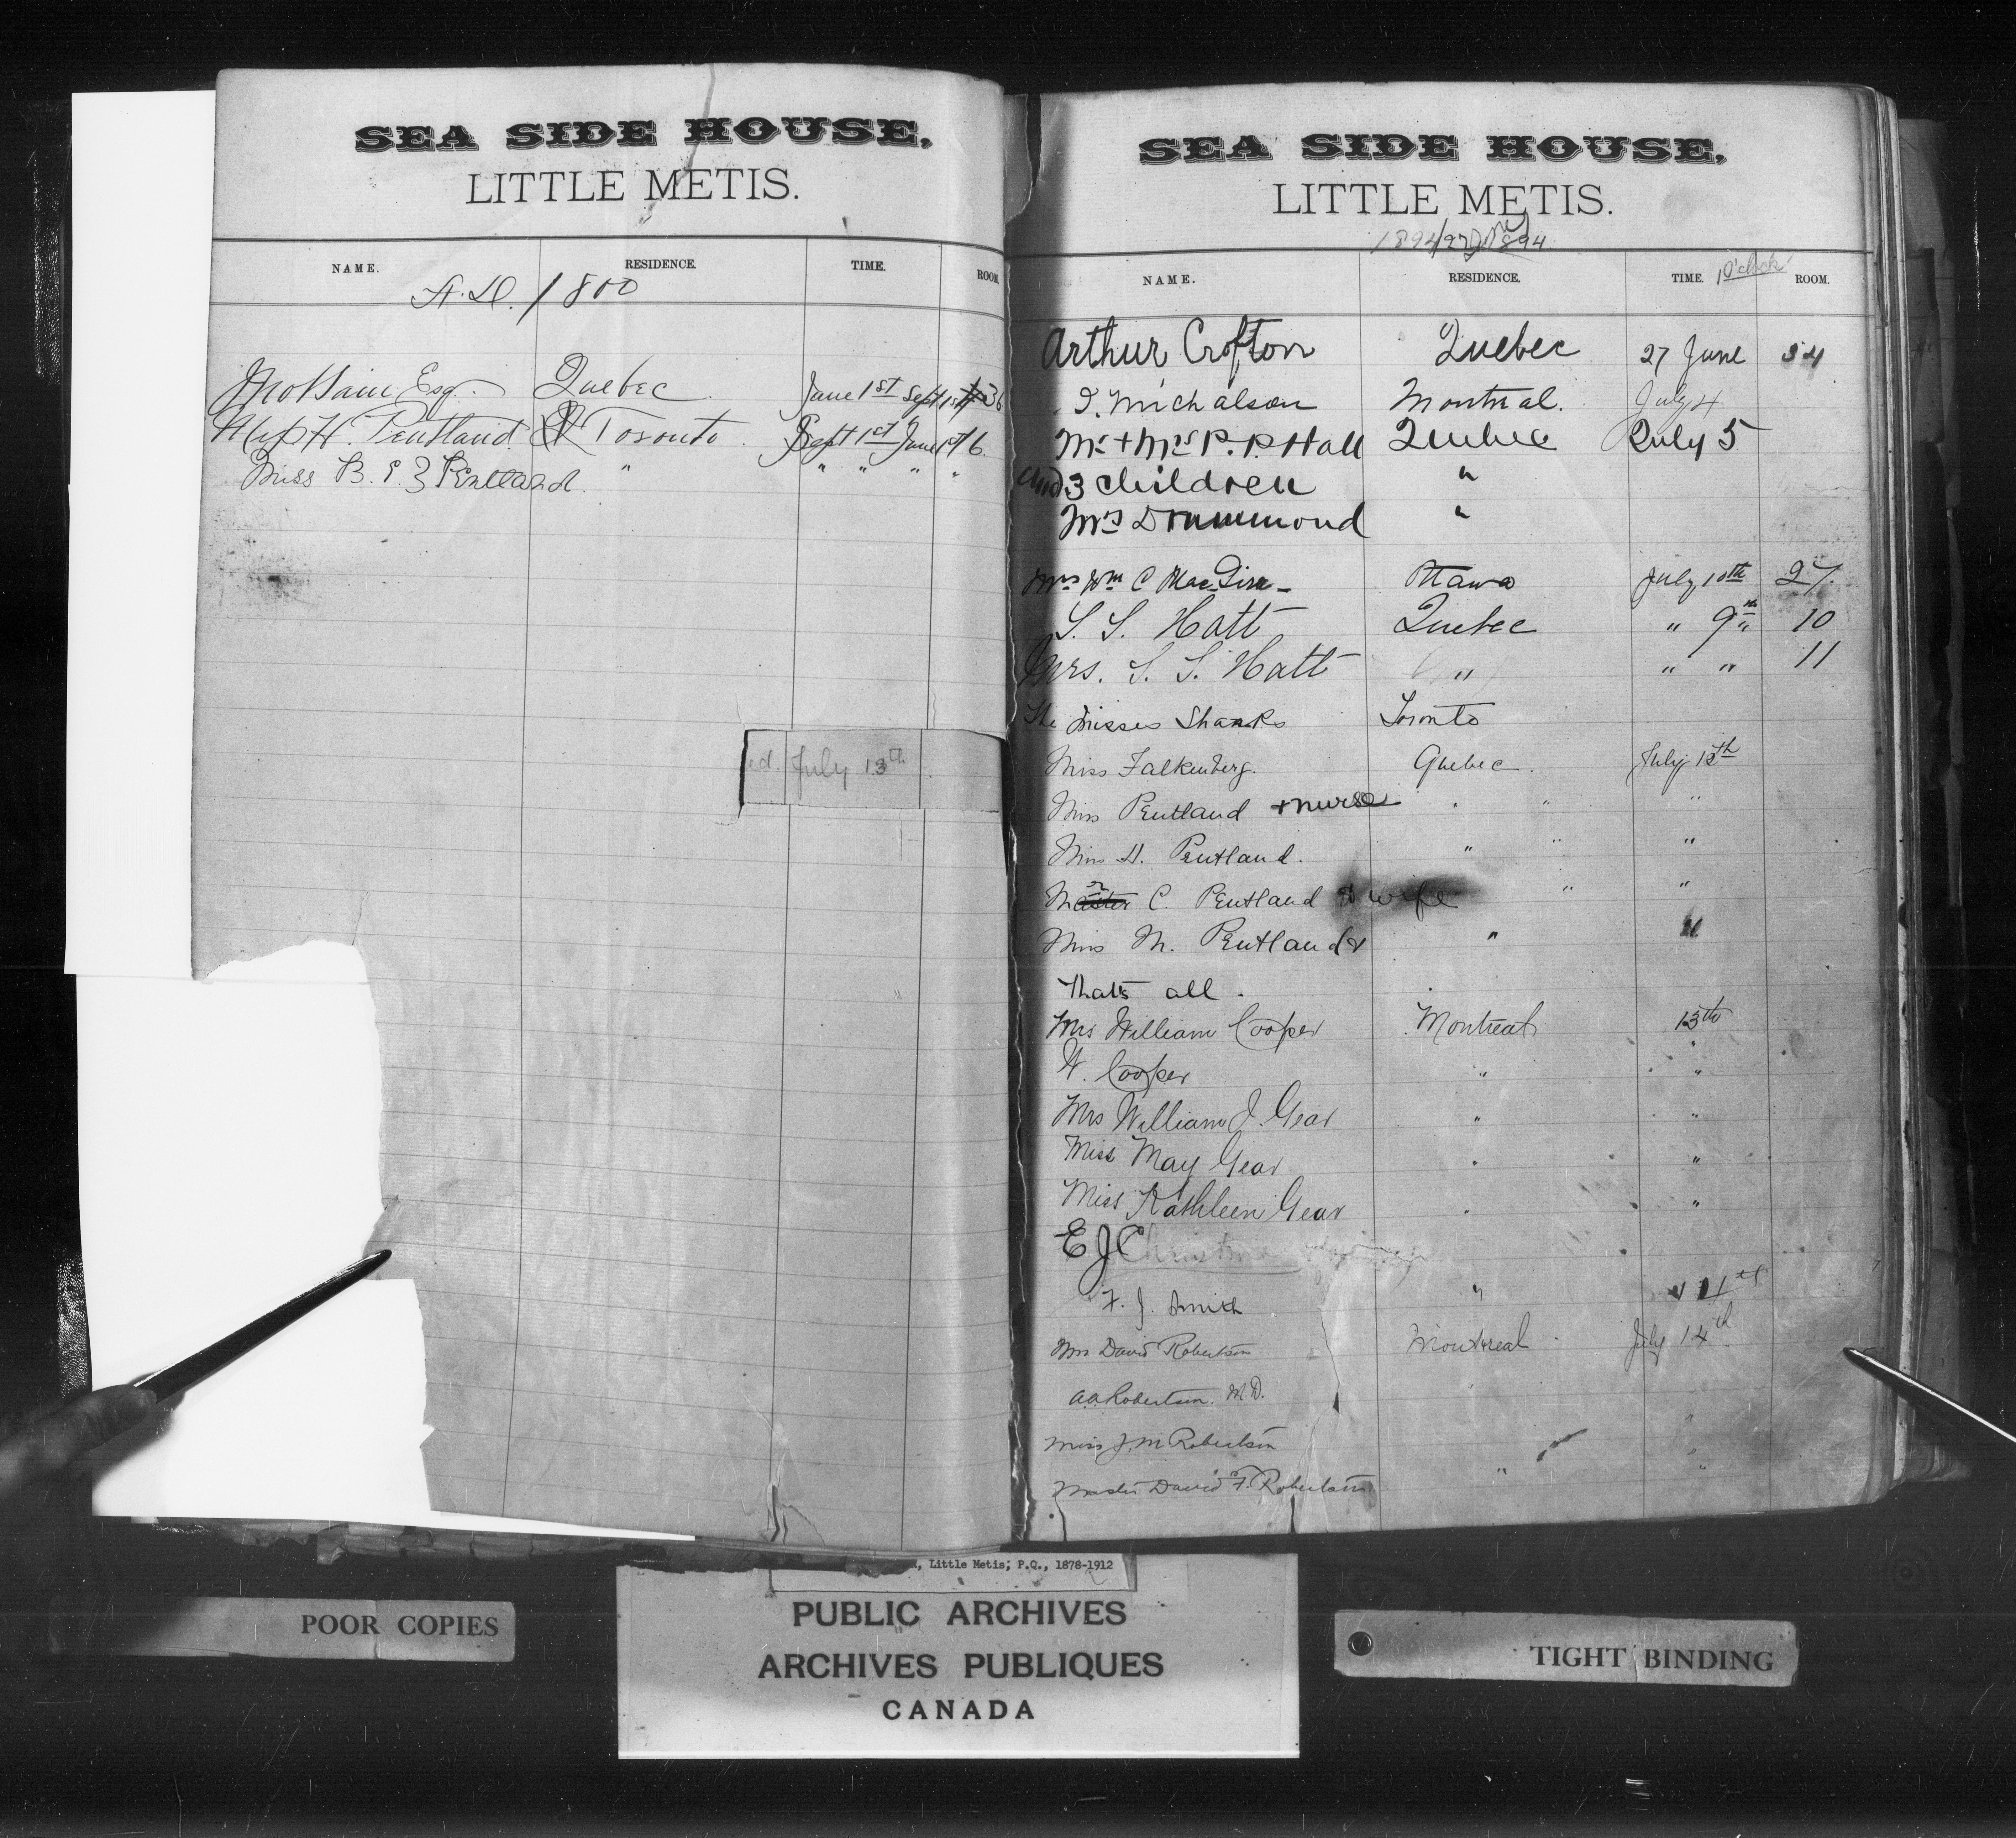 SEA SIDE HOUSE,
LITTLE METIS.
NAME. RESIDENCE. TIME. ROOM.
A.D. / 800
Esq. Quebec June 1st Sept 1st 36
H. Pentland Toronto Sept 1st June 1st 6
Miss B. E. Z Pentland. " " " " "
ed. July 13th
SEA SIDE HOUSE,
LITTLE METIS.
1894/27 1894
NAME. RESIDENCE. TIME. 1 O'clock ROOM.
Arthur Crofton Quebec 27 June 34
I. Michalson Montreal. July 4
Mr + Mrs P. P. Hall Quebec July 5
and 3 children "
Mrs Drummond "
Mrs Wm C Ottawa July 10th 27.
S. S. Hatt Quebec " 9th " 10
Mrs. S. S. Hatt " " " 11
The Misses Shanks Toronto
Miss Falkenberg. Quebec. July 12th
Miss Pentland + nurse " " "
Miss H. Pentland. " " "
Master C. Pentland & wife " "
Miss M. Pentland " "
thats all.
Mrs William Cooper Montreal 13th
W. Cooper " "
Mrs William J. Gear " "
Miss May Gear " "
Miss Kathleen Gear " "
E J Christmas
F. J. Smith "
Mrs David Robertson Montreal July 14th
A.A. Robertson. M.D. " "
Miss J. M Robertson "
Master David F. Robertson " "
, Little Metis; P.Q., 1878-1912
PUBLIC ARCHIVES
ARCHIVES PUBLIQUES
CANADA
POOR COPIES
TIGHT BINDING